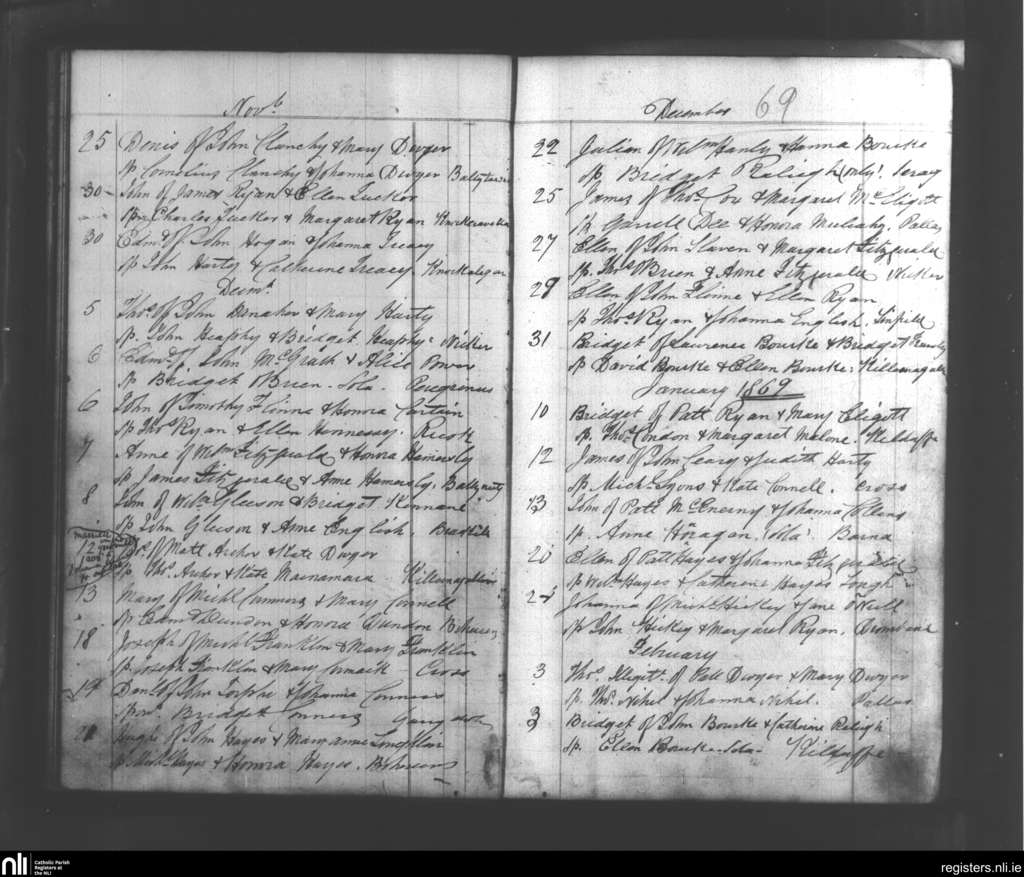 Novb.
25 Denis of John Clanchy & Mary Dwyer
Sp Cornelius Clanchy & Johanna Dwyer
30 John of James Ryan & Ellen Tucker
Spr Charles Tucker & Margaret Ryan
30 Edmd of John Hogan & Johanna Treacy
Sp John Harty & Catharine Treacy
Decmr.
5 Thos. of John Danaher & Mary Harty
Sp. John Heaphy & Bridget Heaphy. Nicker
6 Edmd. of John McGrath & Alice Power
Sp Bridget OBrien. Sola. Peregrinus
6 John of Timothy Flinna & Honora Curtain
Sp Thos Ryan & Ellen Hennessy.
7 Anne of Wm Fitzgerald & Honora Hamersly
Sp James Fitzgerald & Anne Hamersly.
8 John of Wm Gleeson & Bridget Kennane
Sp John Gleeson & Anne English.
12 of Matt Archer & Kate Dwyer
Sp Thos Archer & Kate Macnamara
13 Mary of Michl Connors & Mary Connell
Sp Edmd Dundon & Honora Dundon
18 Joseph of Michl Franklin & Mary Franklin
Sp Joseph Franklin & Mary Cross
19 Danl. of John & Johanna Connors
Bridget Connors
21 Hugh of John Hayes & Maryanne Loughlin
Sp Michl Hayes & Honora Hayes.
December 69
22 Julian of Wm Hanly & Hanna Bourke
Sp Bridget Raleigh (only).
25 James of Thos. Cox & Margaret McEligott
Sp Garrett Dee & Honora Mulcahy. Pallas
27 Ellen of John Slaven & Margaret Fitzgerald
Sp. Thos OBrien & Anne Fitzgerald Nicker
29 Ellen of John Flinne & Ellen Ryan
Sp Thos Ryan & Johanna English. Linfield
31 Bridget of Laurence Bourke & Bridget
Sp David Bourke & Ellen Bourke.
January 1869
10 Bridget of Patt Ryan & Mary Eligott
Sp. Thos. Condon & Margaret Malone.
12 James of John Geary & Judith Harty
Sp. Michl Lyons & Kate Connell. Cross
13 John of Patt McEnerny & Johanna Collens
Sp. Anne Horagan. Sola. Barna
20 Ellen of Patt Hayes & Johanna Fitzgerald
Sp Wm Hayes & Catherine Hayes
24 Johanna of Michl Hickey & Jane ONeill
Sp John Hickey & Margaret Ryan.
February
3 Thos. of Patt Dwyer & Mary Dwyer
Sp. Thos. Nihil & Johanna Nihil. Pallas
3 Bridget of John Bourke & Catherine Raleigh
Sp. Ellen Bourke. Sola. Kilduffe
nli Catholic Parish
Registers at
the NLI
registers.nli.ie